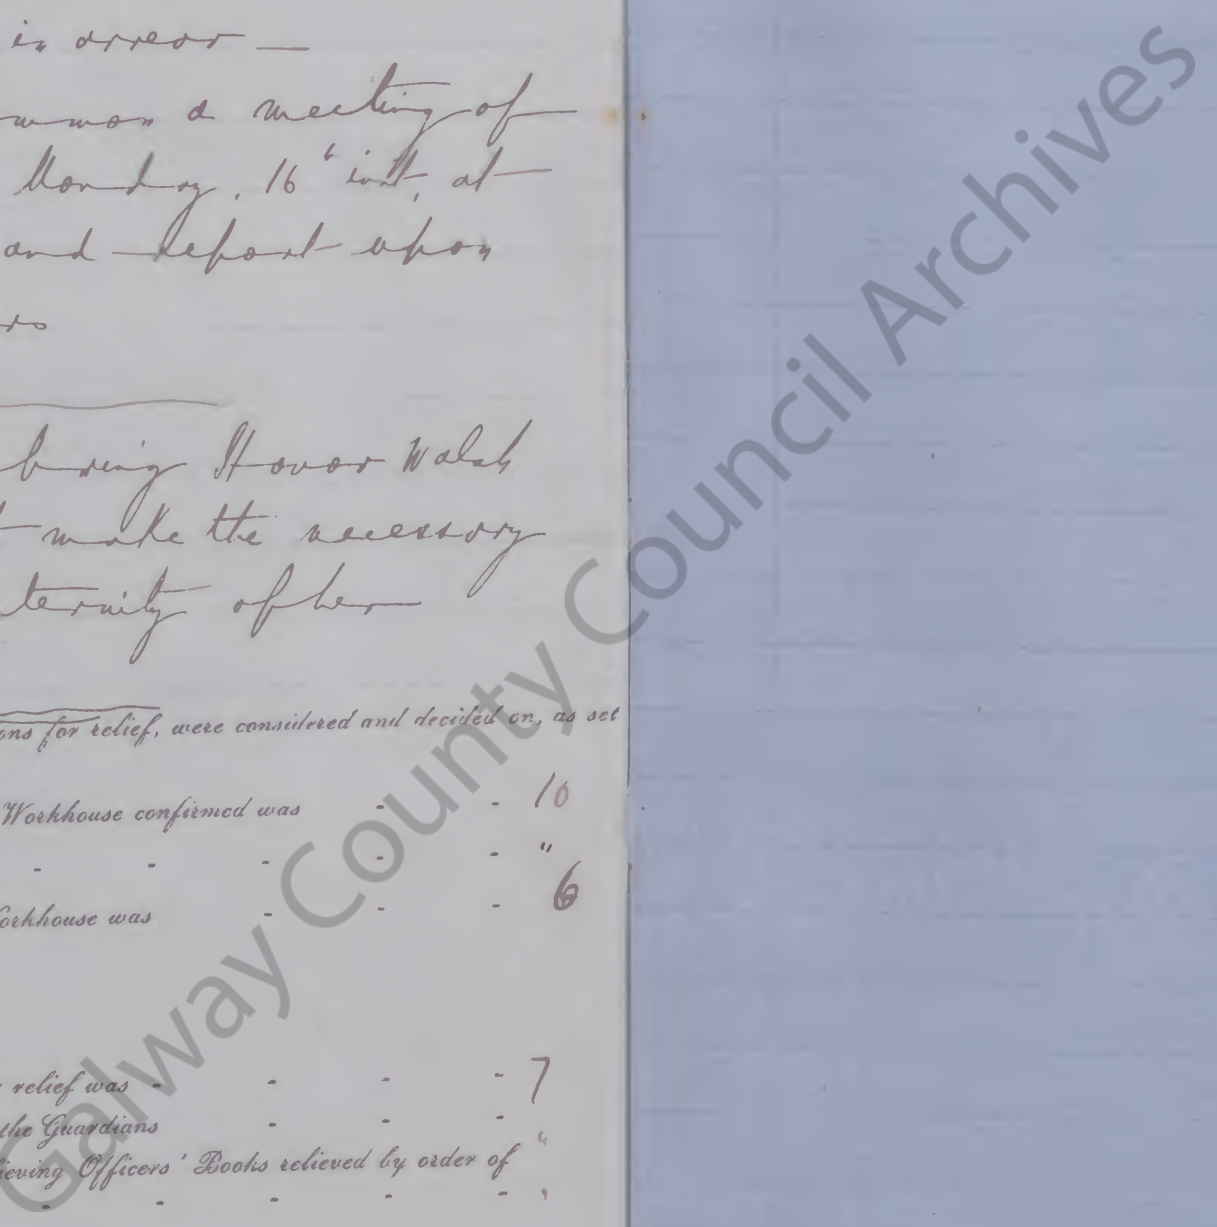 in arrear —
a meeting of
Monday, 16th inst, at
and report upon
bring Honor Walsh
make the necessary
of her
for relief, were considered and decided on, as set
Workhouse confirmed was - - 10
- - - - - "
was - - - 6
relief was - - - - 7
the Guardians - - - "
Officers' Books relieved by order of
- - - - - "
Galway County Council Archives